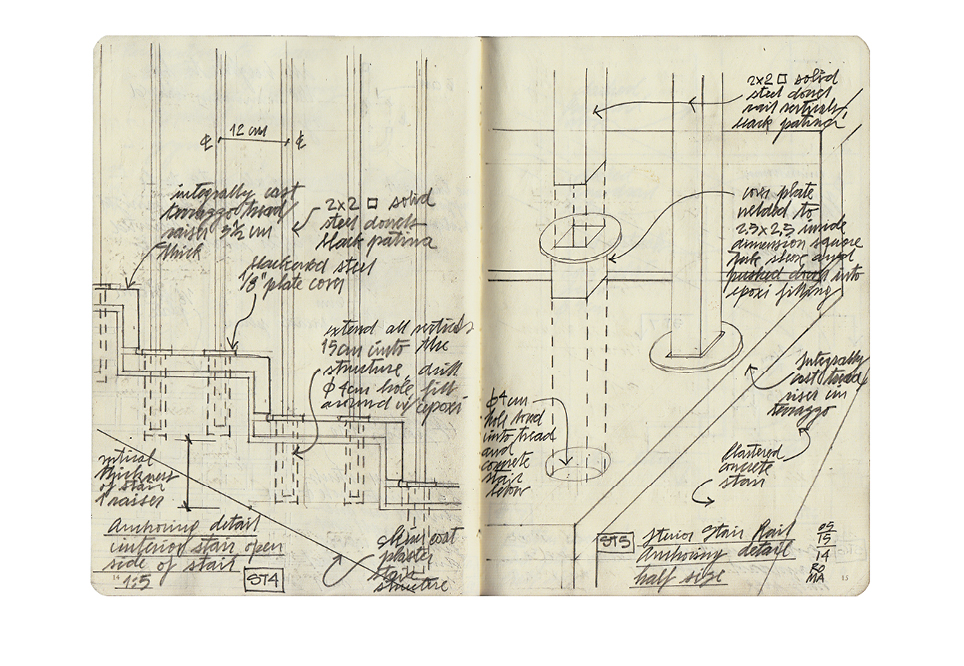 ℄ 12 cm ℄
integrally cast
terrazzo tread
raiser 3½ cm
thick
2x2 □ solid
steel dowels
black patina
blackened steel
1/8" plate corn
extend all verticals
15cm into the
structure, drill
ϕ 4cm hole, fill
around w/ epoxi
vertical
thickness
of stair
raiser
Anchoring detail
interior stair open
side of stair
1:5
ST4
coat
plaster
stair
structure
14
2x2 □ solid
steel dowel
rail verticals,
black patina
corn plate
welded to
2,5x2,5 inside
dimension square
tube sleve and
pushed down into
epoxi filling
ϕ 4cm
hole
into tread
and
concrete
stair
below
Integrally
cast tread
riser in
terrazzo
Plastered
concrete
stair
ST5
sterior Stair Rail
Anchoring detail
half size
05
15
14
RO
MA
15